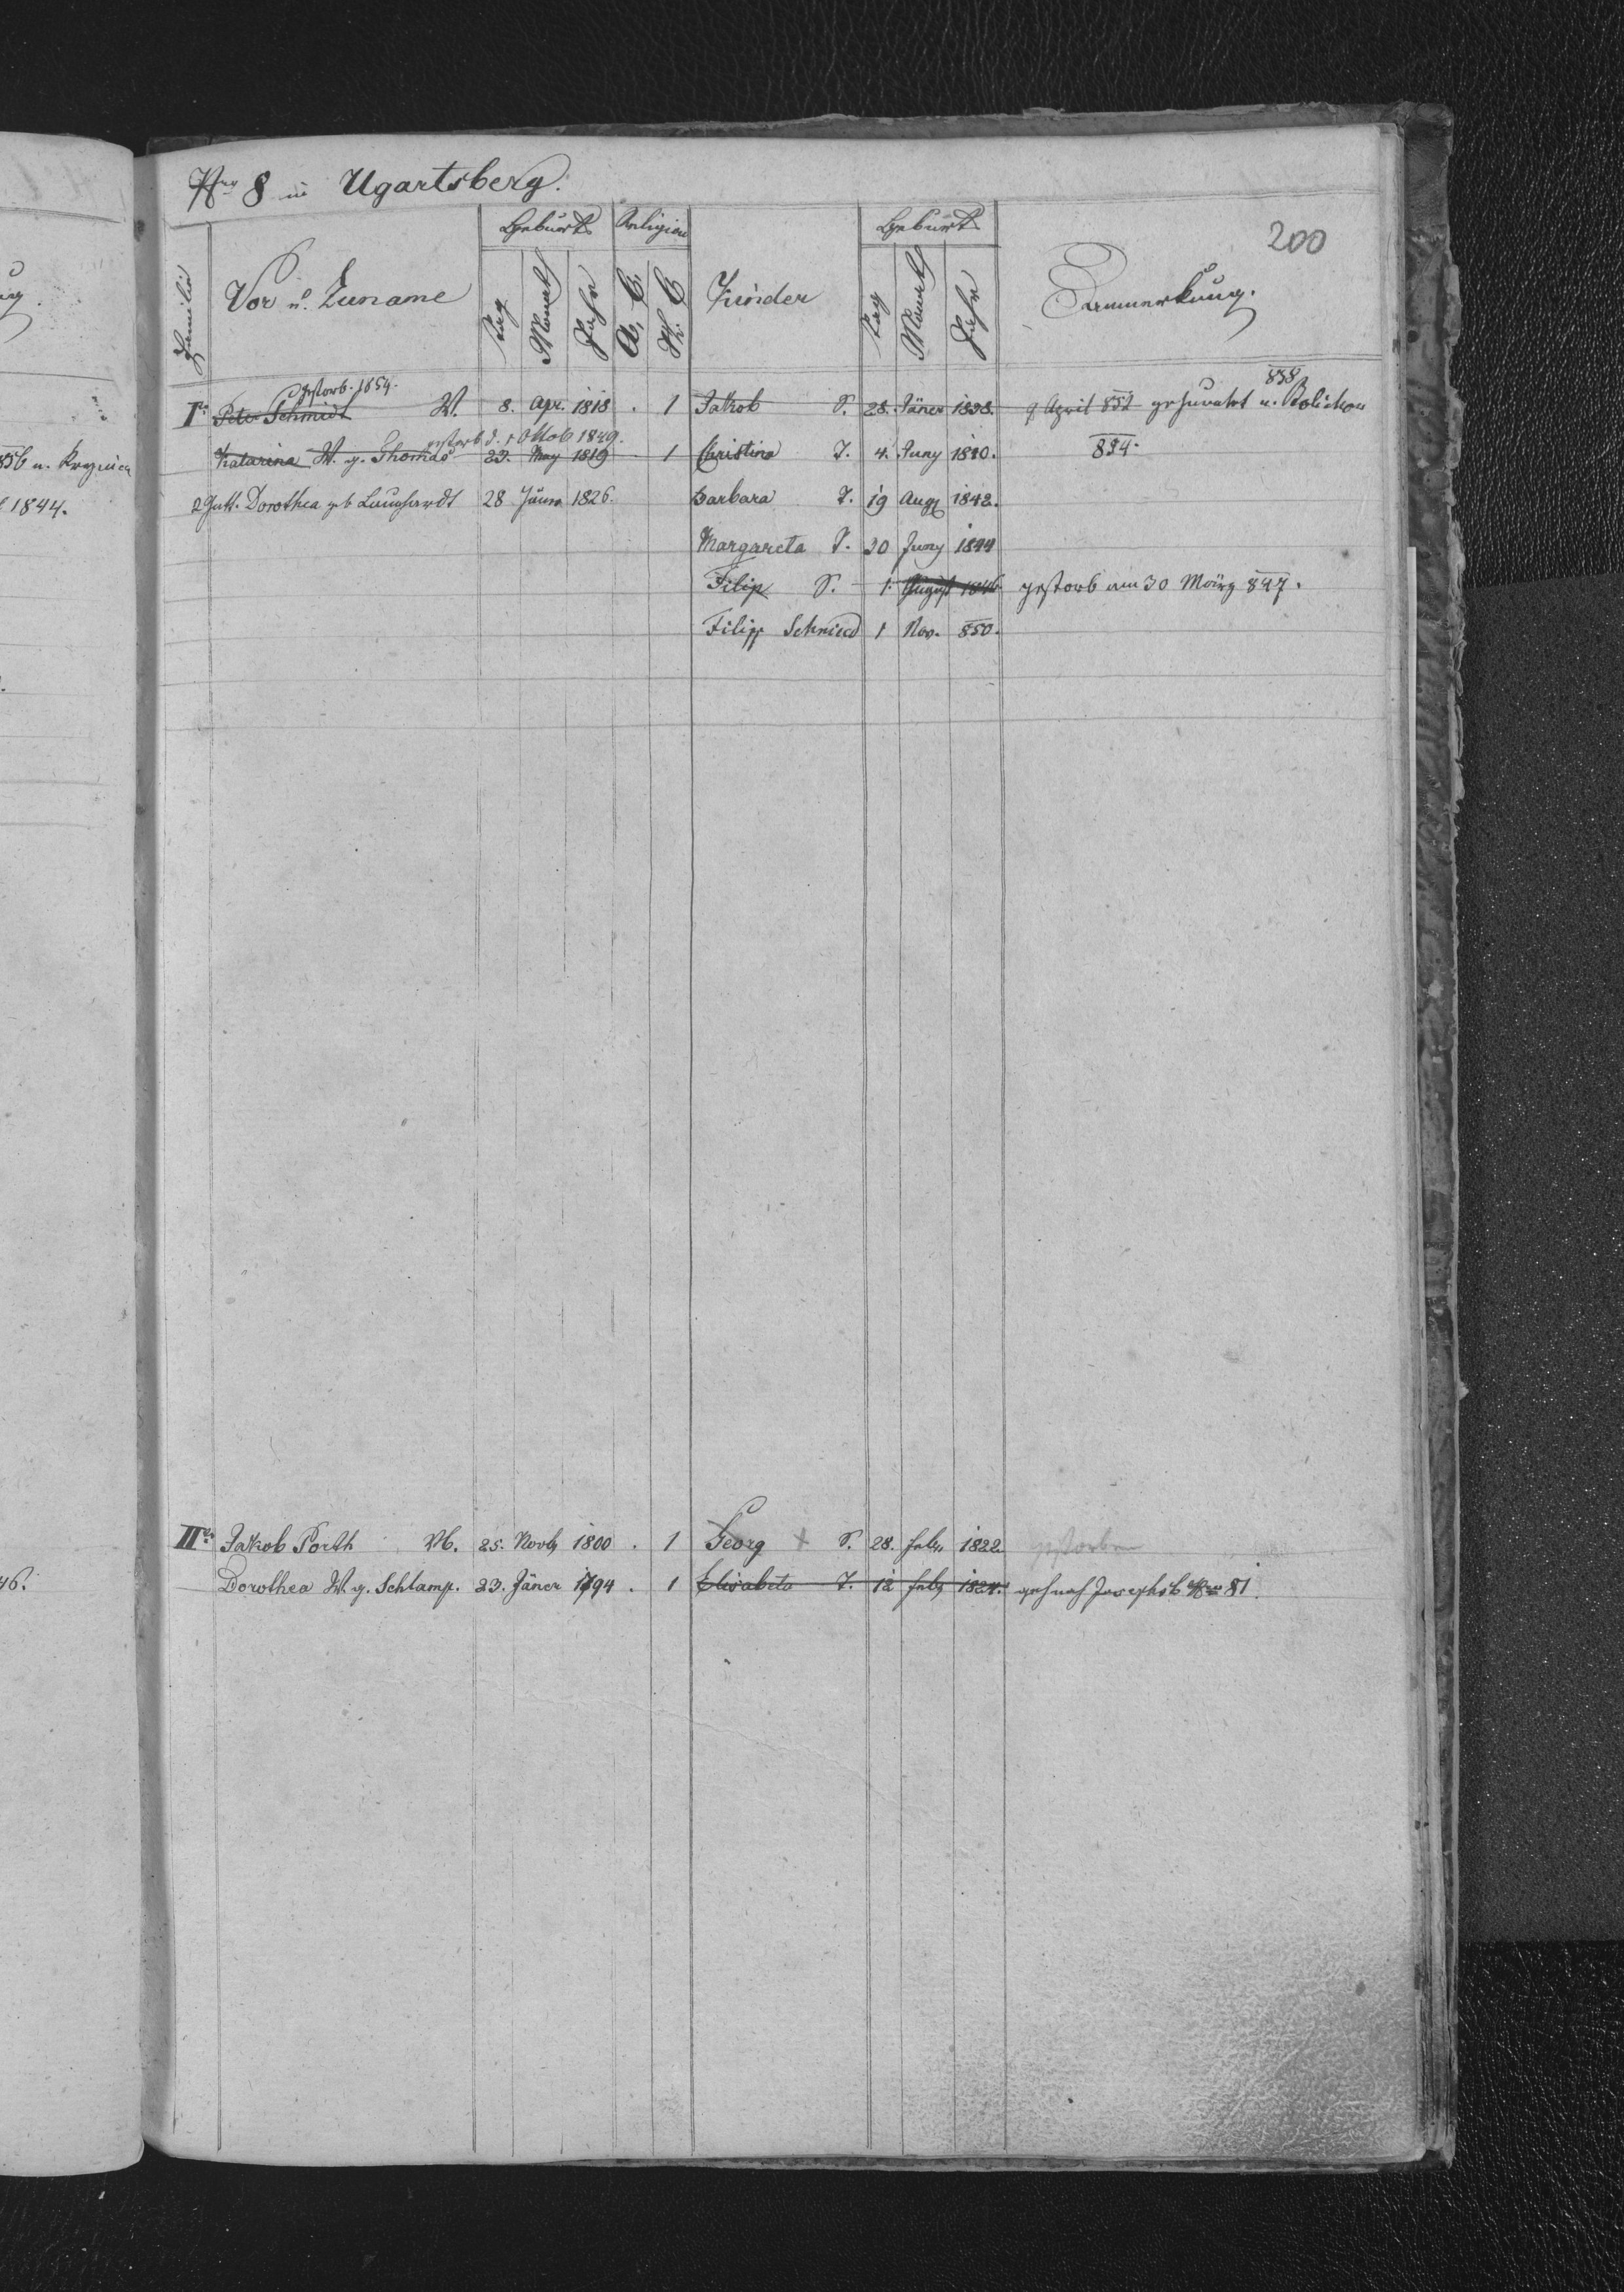 ung.
856 u. Krynica
1844.
46.
Nro 8 in Ugartsberg.
200
Familie Vor u. Zuname Geburts Tag Monat Jahr Religion A. C. H. C Kinder Geburts Tag Monat Jahr Anmerkung.
gestorb. 1854. 858
I. Peter Schmidt W. 8. Apr. 1818 . 1 Jakob S. 28. Jäner 1838. 9 April 852 geheurahrt n. Bolichow
gestorb d. 1 Oktob 1849.
Katarina W. g. Thomas 23. May 1819 . 1 Christina T. 4. Juny 1840. 854.
2 Gatt. Dorothea geb Laufhardt 28 Jäner 1826. Barbara T. 19 Aug 1842.
Margareta T. 30 Juny 1844
Filip S. 1. August 1846 gestorb am 30 März 847.
Filipp Schmied 1 Nov. 850.
II. Jakob Porth W. 25. Novb 1800 . 1 Georg S. 28. Feb. 1822 gestorben
Dorothea W. g. Schlamp. 23. Jäner 1794 . 1 Elisabeta T. 12 Feb 1824. geh nach Josephsb Nro 81.